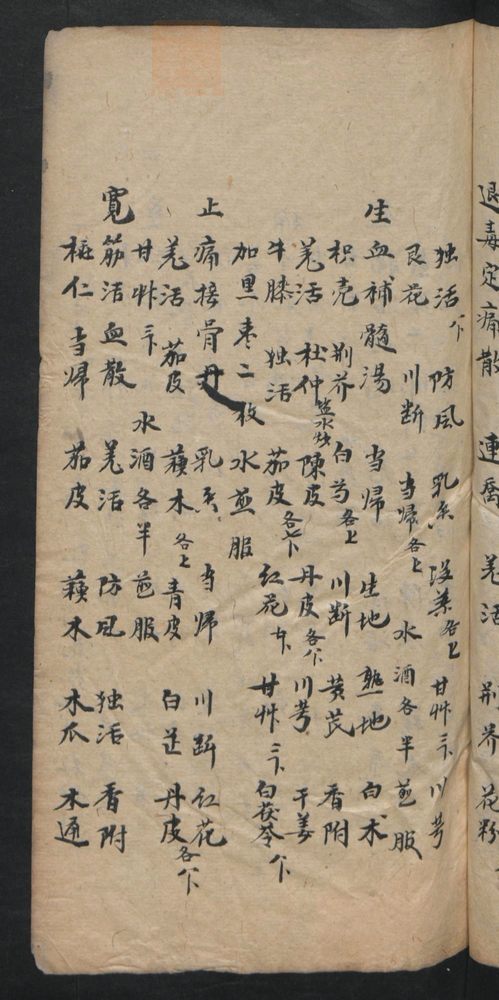 退毒定痛散 連喬 羌活 荆芥 花粉
独活 防風 乳香 没薬各 甘艸三卜 川芎
艮花 川断 当帰各 水酒各半煎服
生血補髓湯 当帰 生地 熟地 白术
枳壳 荆芥 白芍各 川断 黄芪 香附
羌活 杜仲盐水炒 陳皮 丹皮各 川芎 干姜
牛膝 独活 茄皮各 红花 甘艸三卜 白茯苓
加黑枣二枚 水煎服
止痛接骨丹 乳香 当帰 川断 红花
羌活 茄皮 蘓木各 青皮 白芷 丹皮各
甘艸三卜 水酒各半煎服
寛筋活血散 羌活 防风 独活 香附
桃仁 当帰 茄皮 蘓木 木瓜 木通